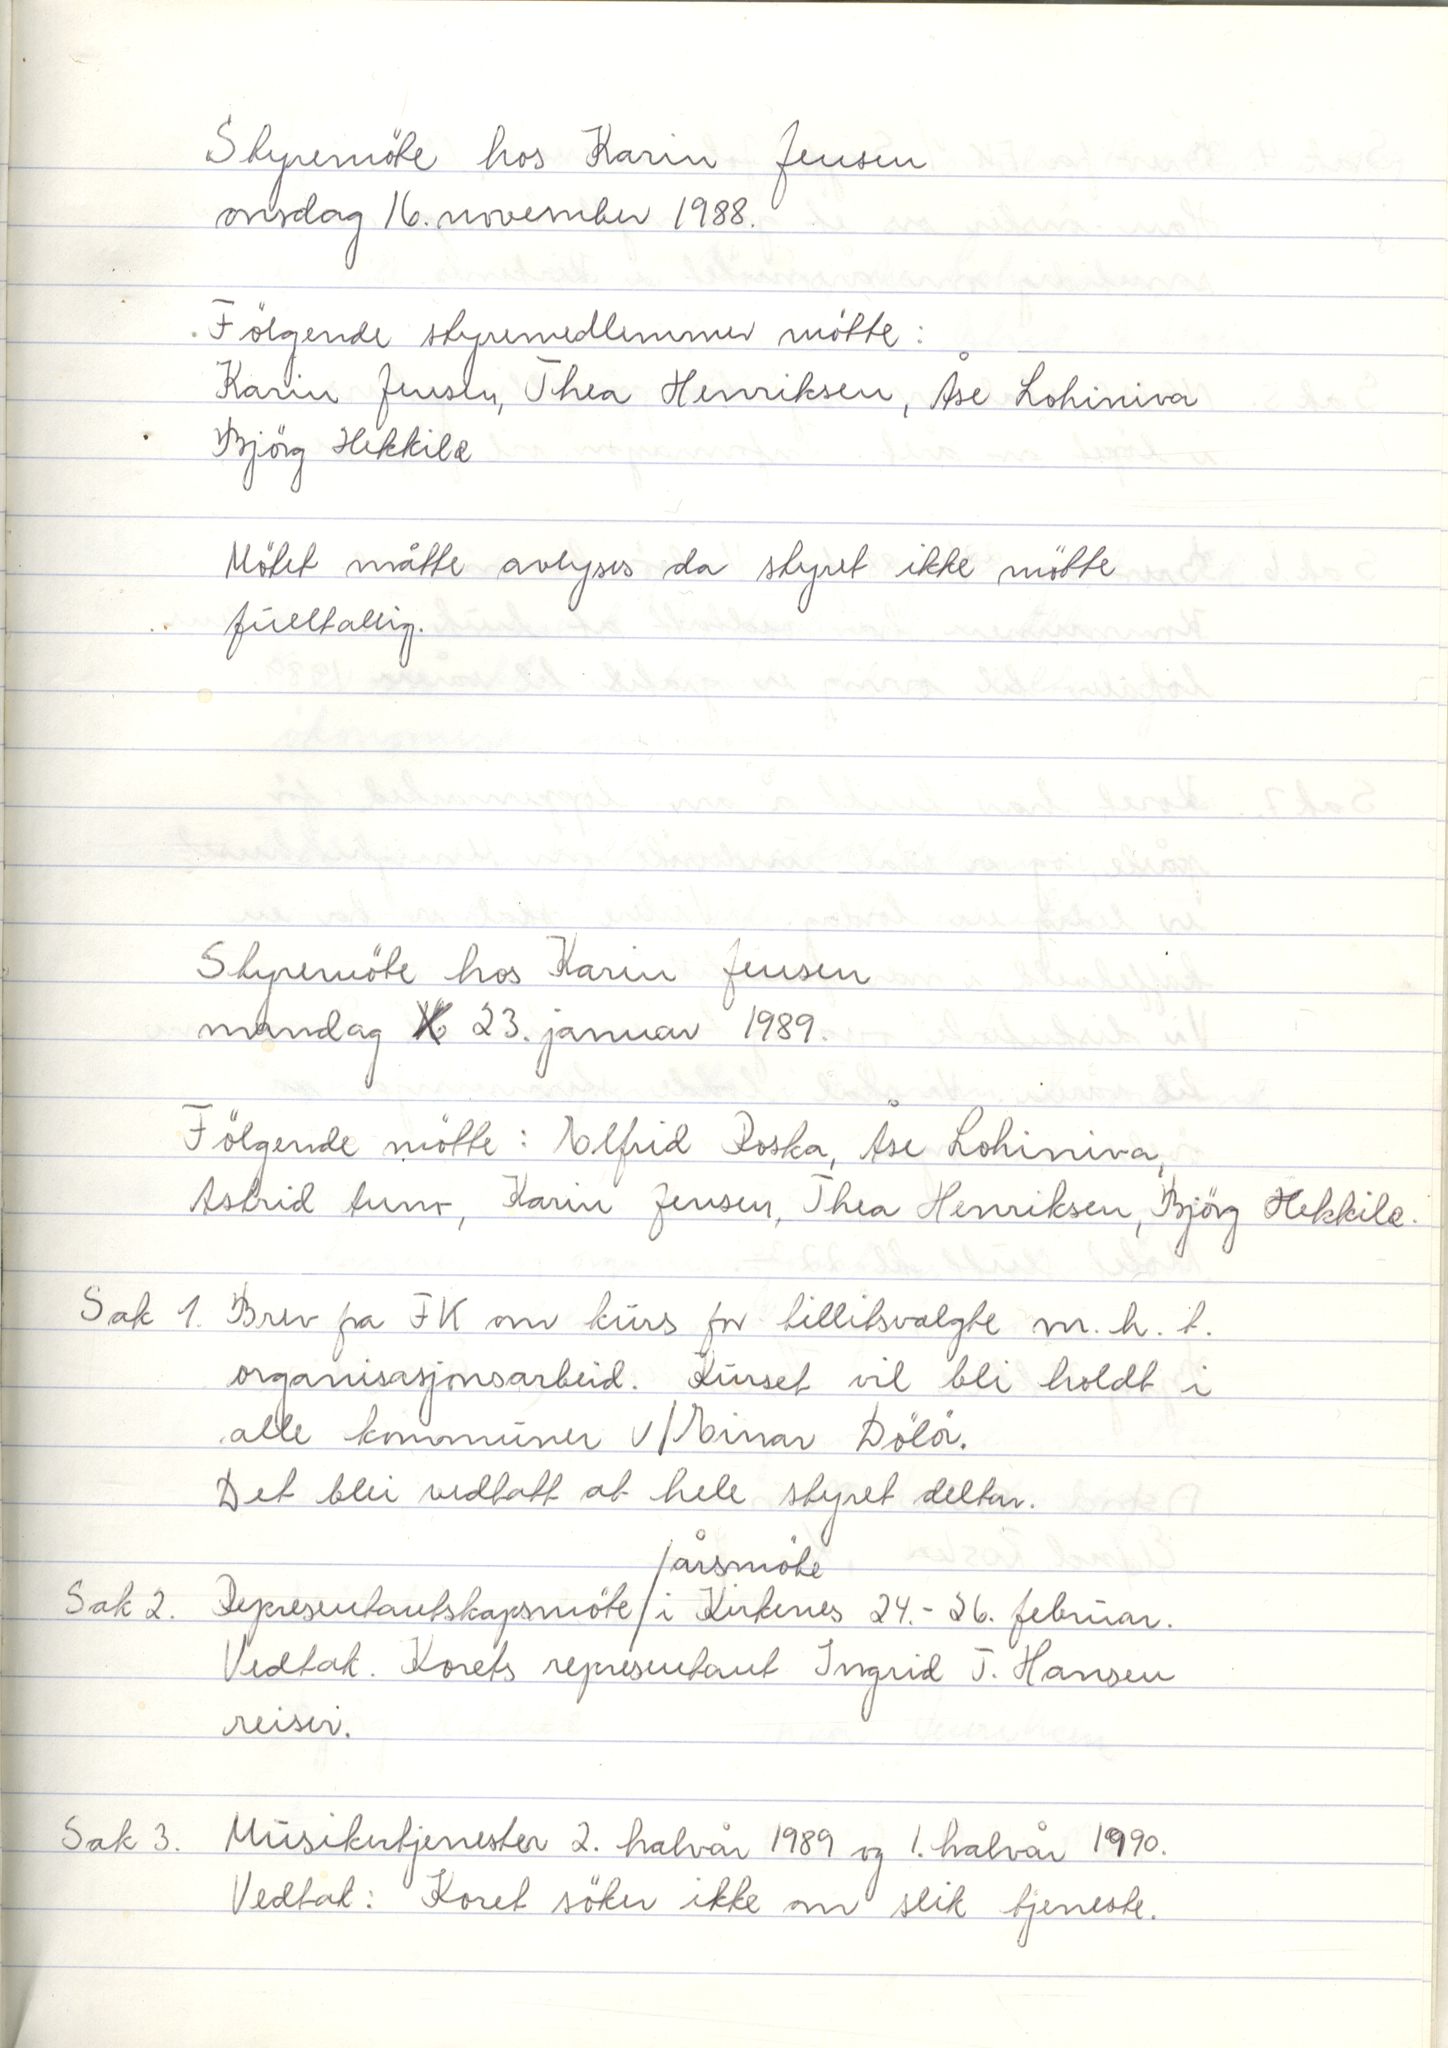 Styremöte hos Karin Jensen
onsdag 16. november 1988.
Fölgende styremedlemmer mötte:
Karin Jensen, Thea Henriksen, Åse Lohiniva
Björg Hekkilæ
Mötet måtte avlyses da styret ikke mötte
fulltallig.
Styremöte hos Karin Jensen
mandag 23. januar 1989.
Fölgende mötte: Elfrid Roska, Åse Lohiniva,
Astrid, Karin Jensen, Thea Henriksen, Björg Hekkilæ.
Sak 1. Brev fra FK om kurs for tillitsvalgte m.h.t.
organisasjonsarbeid. Kurset vil bli holdt i
alle kommuner v/Einar Dölör.
Det blei vedtatt at hele styret deltar.
/årsmöte
Sak 2. Representantskapsmöte/i Kirkenes 24.-26. februar.
Vedtak. Korets representant Ingrid T. Hansen
reiser.
Sak 3. Musikertjenester 2. halvår 1989 og 1. halvår 1990.
Vedtak: Koret söker ikke om slik tjeneste.